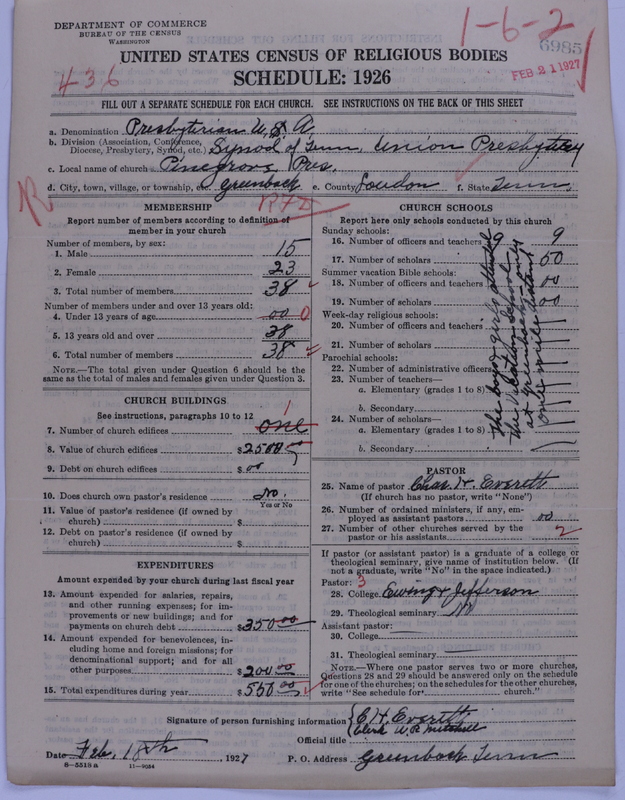 DEPARTMENT OF COMMERCE
BUREAU OF THE CENSUS
WASHINGTON
1-6-2
6985
FEB 21 1927
436
UNITED STATES CENSUS OF RELIGIOUS BODIES
SCHEDULE: 1926
FILL OUT A SEPARATE SCHEDULE FOR EACH CHURCH. SEE INSTRUCTIONS ON THE BACK OF THIS SHEET
a. Denomination Presbyterian U.S.A.
b. Division (Association, Conference, Diocese, Presbytery, Synod, etc.) Synod of Tenn. Union Presbytery
c. Local name of church Pinegrove Pres.
d. City, town, village, or township, Greenback e. County Loudon f. State Tenn.
R
MEMBERSHIP
Report number of members according to definition of
member in your church
Number of members, by sex:
1. Male 15
2. Female 23
3. Total number of members 38
Number of members under and over 13 years old:
4. Under 13 years of age 00 0
5. 13 years old and over 38
6. Total number of members 38
NOTE.—The total given under Question 6 should be
same as the total of males and females given under Question 3.
CHURCH BUILDINGS
See instructions, paragraphs 10 to 12
1
7. Number of church edifices one
8. Value of church edifices $ 2500 00
9. Debt on church edifices $ 00
10. Does church own pastor's residence No.
Yes or No
11. Value of pastor's residence (if owned by
church) $
12. Debt on pastor's residence (if owned by
church) $
EXPENDITURES
Amount expended by your church during last fiscal year
13. Amount expended for salaries, repairs,
and other running expenses; for im-
provements or new buildings; and for
payments on church debt $ 350 00
14. Amount expended for benevolences, in-
cluding home and foreign missions; for
denominational support; and for all
other purposes $ 200 00
15. Total expenditures during year $ 550 00
CHURCH SCHOOLS
Report here only schools conducted by this church
Sunday schools:
16. Number of officers and teachers 9 9
17. Number of scholars 50
Summer vacation Bible schools:
18. Number of officers and teachers 00
19. Number of scholars 00
Week-day religious schools:
20. Number of officers and teachers
21. Number of scholars
Parochial schools:
22. Number of administrative officers
23. Number of teachers—
a. Elementary (grades 1 to 8)
b. Secondary
24. Number of scholars—
a. Elementary (grades 1 to 8)
b. Secondary
The boys & girls attended
the School
at Greenback only
one mile distant
PASTOR
25. Name of pastor Chas. H. Everett
(If church has no pastor, write "None")
26. Number of ordained ministers, if any, em-
ployed as assistant pastors 00
27. Number of other churches served by the
pastor or his assistants 2
If pastor (or assistant pastor) is a graduate of a college or
theological seminary, give name of institution below. (If
not a graduate, write "No" in the space indicated.)
Pastor: 3
28. College Ewing & Jefferson
29. Theological seminary No
Assistant pastor:
30. College
31. Theological seminary
NOTE.—Where one pastor serves two or more churches,
Questions 28 and 29 should be answered only on the schedule
for one of the churches; on the schedules for the other churches,
write "See schedule for church."
Signature of person furnishing information C. H. Everett
Clerk W. R. Mitchell
Official title
Date Feb. 18th, 1927 P. O. Address Greenback Tenn
8-5518 a 11-9034